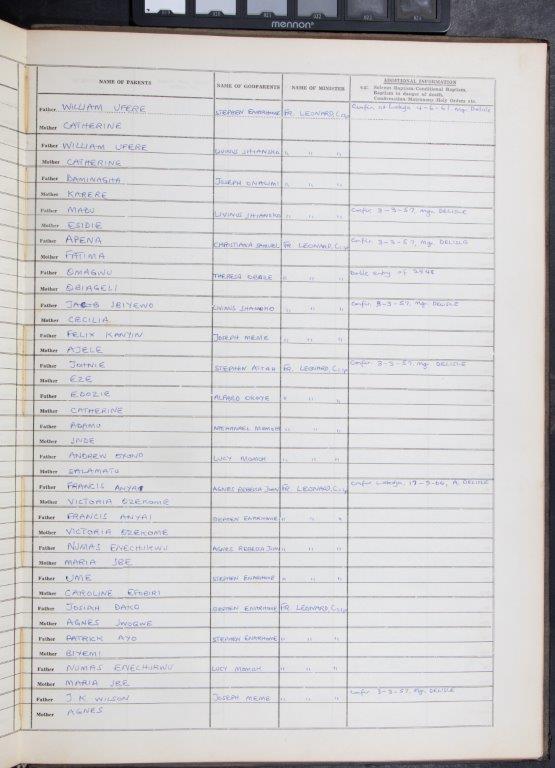 mennon
NAME OF PARENTS NAME OF GODPARENTS NAME OF MINISTER ADDITIONAL INFORMATION
e.g. Solemn Baptism/Conditional Baptism,
Baptism in danger of death,
Confirmation/Matrimony/Holy Orders etc.
Father WILLIAM UFERE STEPHEN ENARHOME FR. LEONARD, C.S.Sp Confir. at Lokoja 4-6-61. Mgr. DELISLE
Mother CATHERINE
Father WILLIAM UFERE LIVINUS " " "
Mother CATHERINE
Father DAMINAGHA JOSEPH " " "
Mother KARERE
Father MABU LIVINUS " " " Confir. 3-3-57, Mgr. DELISLE
Mother ESIDIE
Father APENA CHRISTIANA SAMUEL FR. LEONARD, C.S.Sp Confir. 3-3-57, Mgr. DELISLE
Mother FATIMA
Father OMAGWU THERESA " " " Dolle entry of 2948
Mother OBIAGELI
Father JACOB IBIYEWO LIVINUS " " " Confir. 3-3-57, Mgr. DELISLE
Mother CECILIA
Father FELIX KANYIN JOSEPH MEME " " "
Mother AJELE
Father JOHNIE STEPHEN AITAH FR. LEONARD, C.S.Sp Confir. 3-3-57, Mgr. DELISLE
Mother EZE
Father EDOZIE ALFRED OKOYE " " "
Mother CATHERINE
Father ADAMU NATHANAEL MOMOH " " "
Mother INDE
Father ANDREW LUCY MOMOH " " "
Mother SALAMATU
Father FRANCIS ANYAI AGNES REBECCA JOHN FR. LEONARD, C.S.Sp Confir. Lokoja, A. DELISLE
Mother VICTORIA OZEKOME
Father FRANCIS ANYAI STEPHEN ENARHOME " " "
Mother VICTORIA OZEKOME
Father NUMAS ENECHUKWU AGNES REBECCA JOHN " " "
Mother MARIA IBE
Father UME STEPHEN ENARHOME " " "
Mother CAROLINE EFOBIRI
Father JOSIAH DAKO STEPHEN ENARHOME FR. LEONARD, C.S.Sp
Mother AGNES IWOGWE
Father PATRICK AYO STEPHEN ENARHOME " " "
Mother BIYEMI
Father NUMAS ENECHUKWU LUCY MOMOH " " "
Mother MARIA IBE
Father J. K. WILSON JOSEPH MEME " " " Confir. 3-3-57, Mgr. DELISLE
Mother AGNES